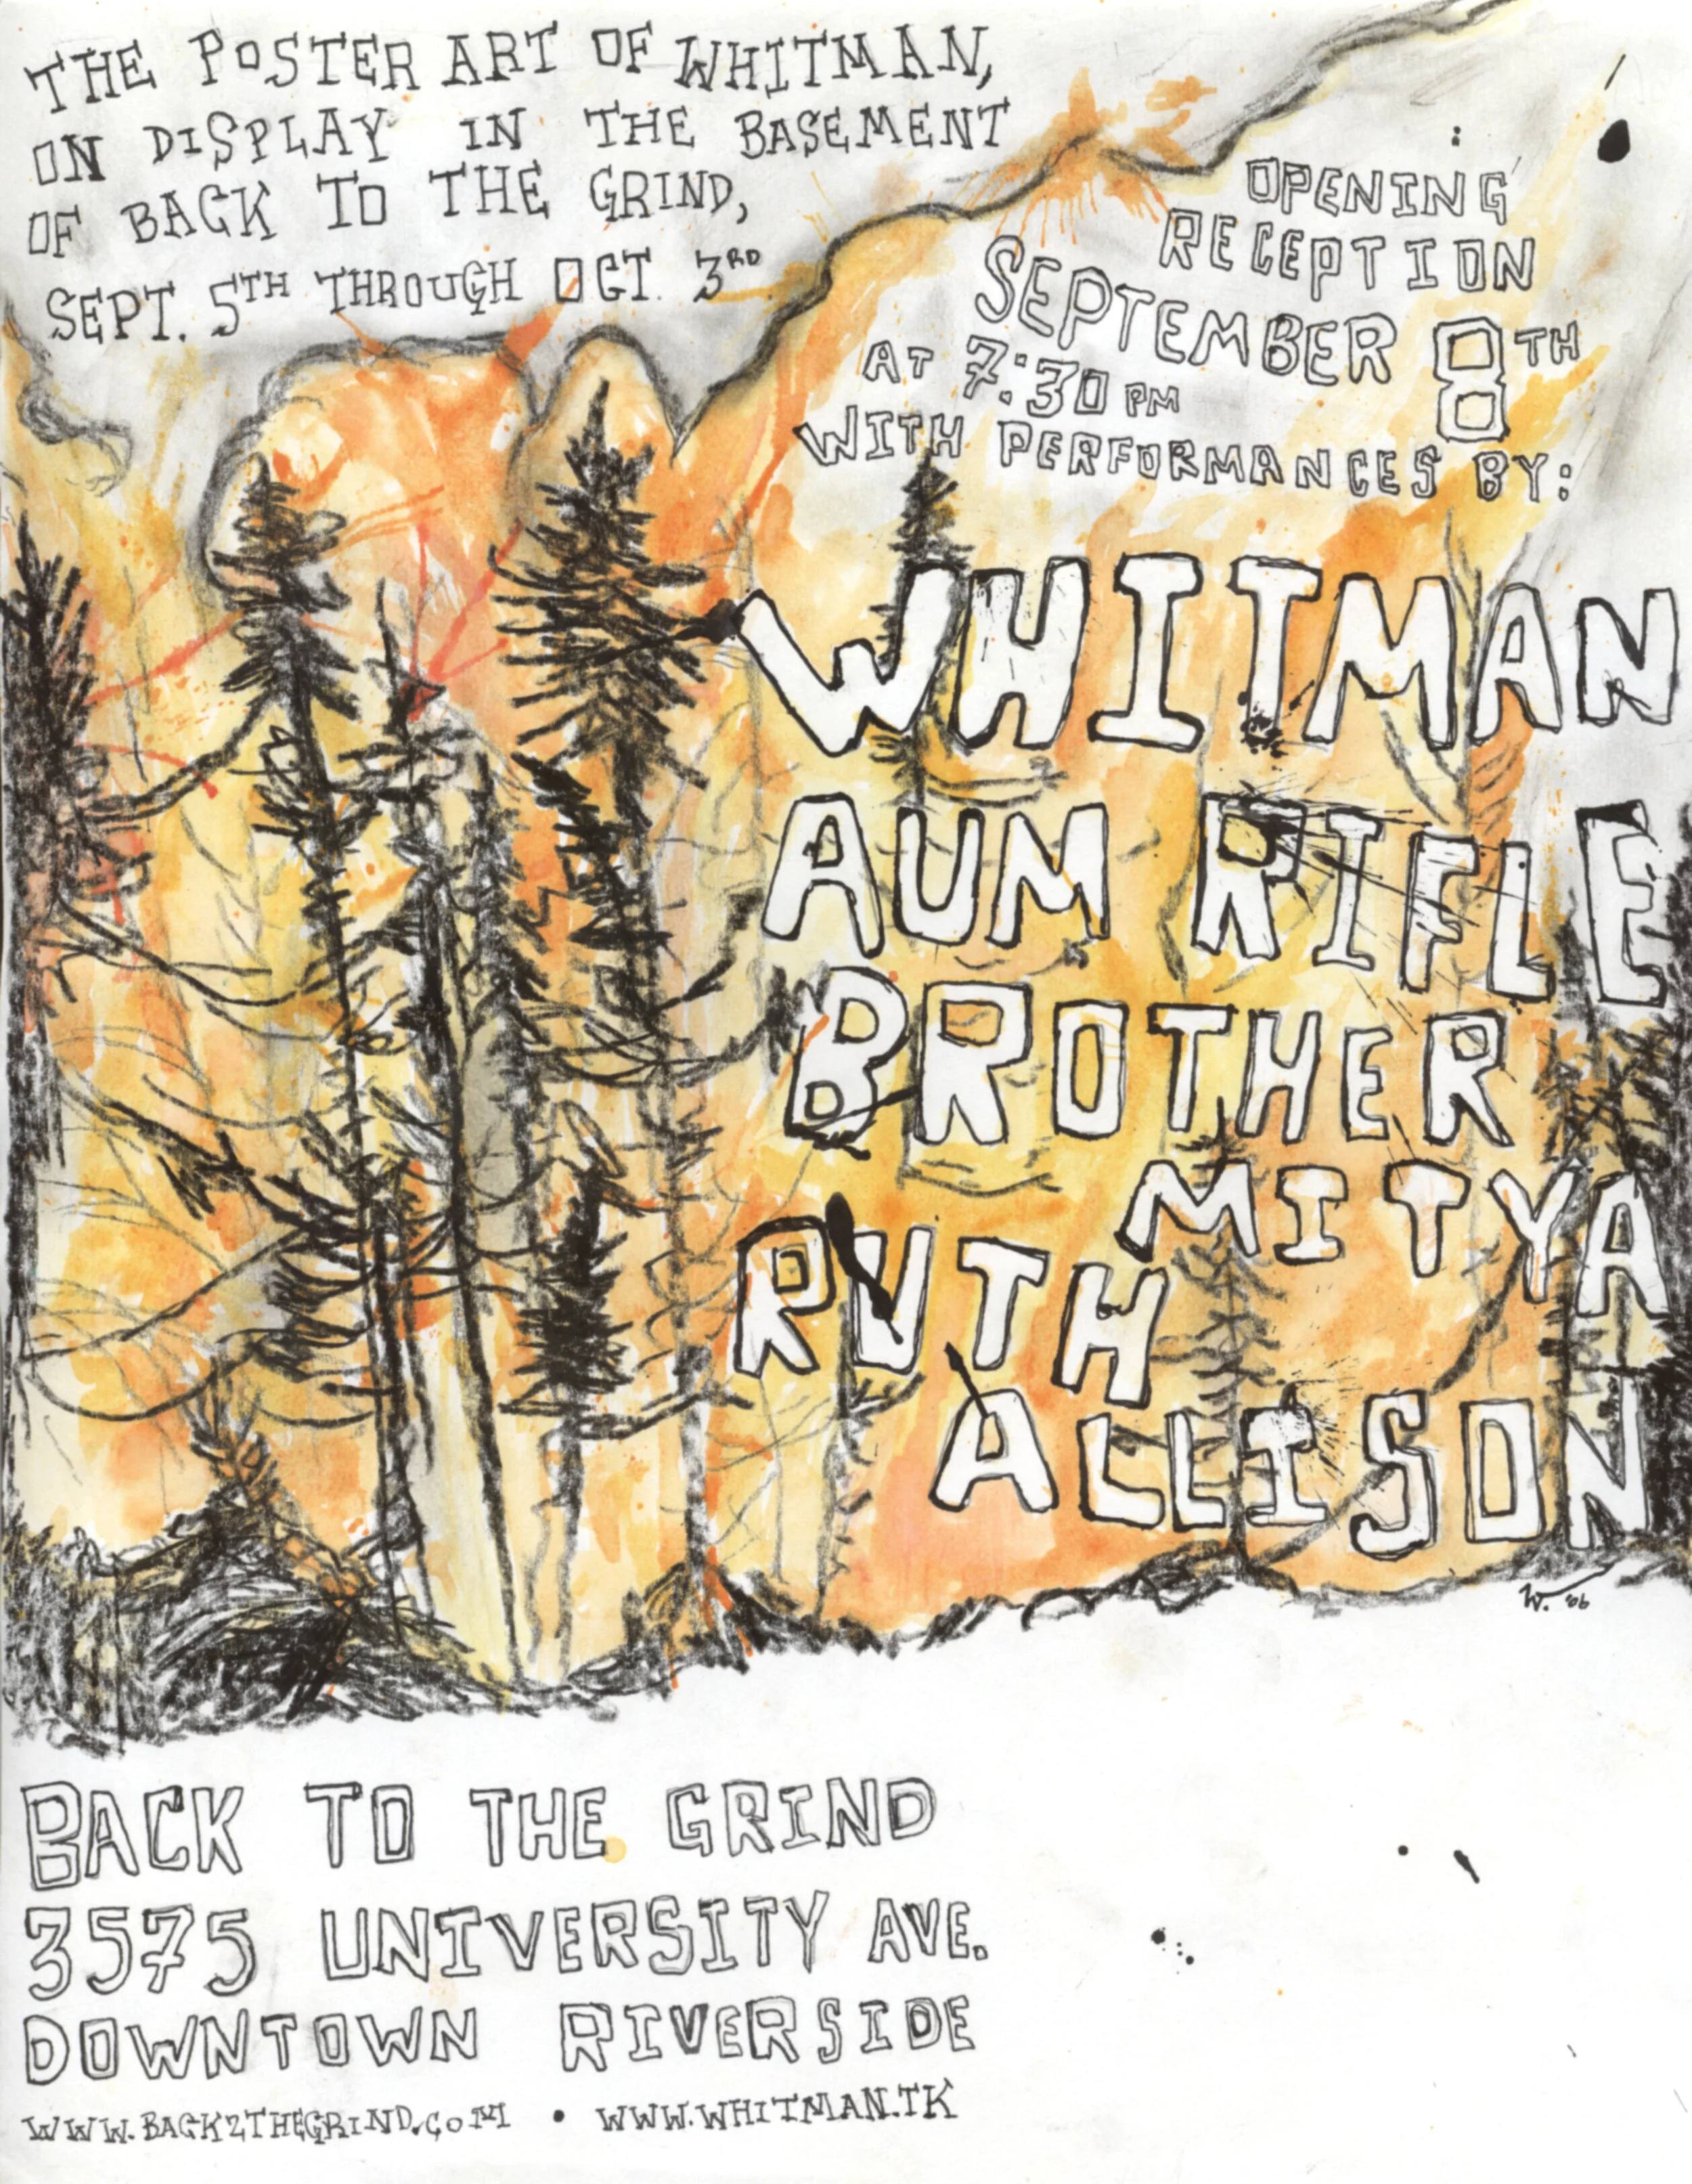 THE POSTER ART OF WHITMAN,
ON DISPLAY IN THE BASEMENT
OF BACK TO THE GRIND,
SEPT. 5TH THROUGH OCT. 3RD
OPENING
RECEPTION
SEPTEMBER 8TH
AT 7:30 PM
WITH PERFORMANCES BY:
WHITMAN
AUM RIFLE
BROTHER
MITYA
RUTH
ALLISON
W. '06
BACK TO THE GRIND
3575 UNIVERSITY AVE.
DOWNTOWN RIVERSIDE
WWW.BACK2THEGRIND.COM • WWW.WHITMAN.TK